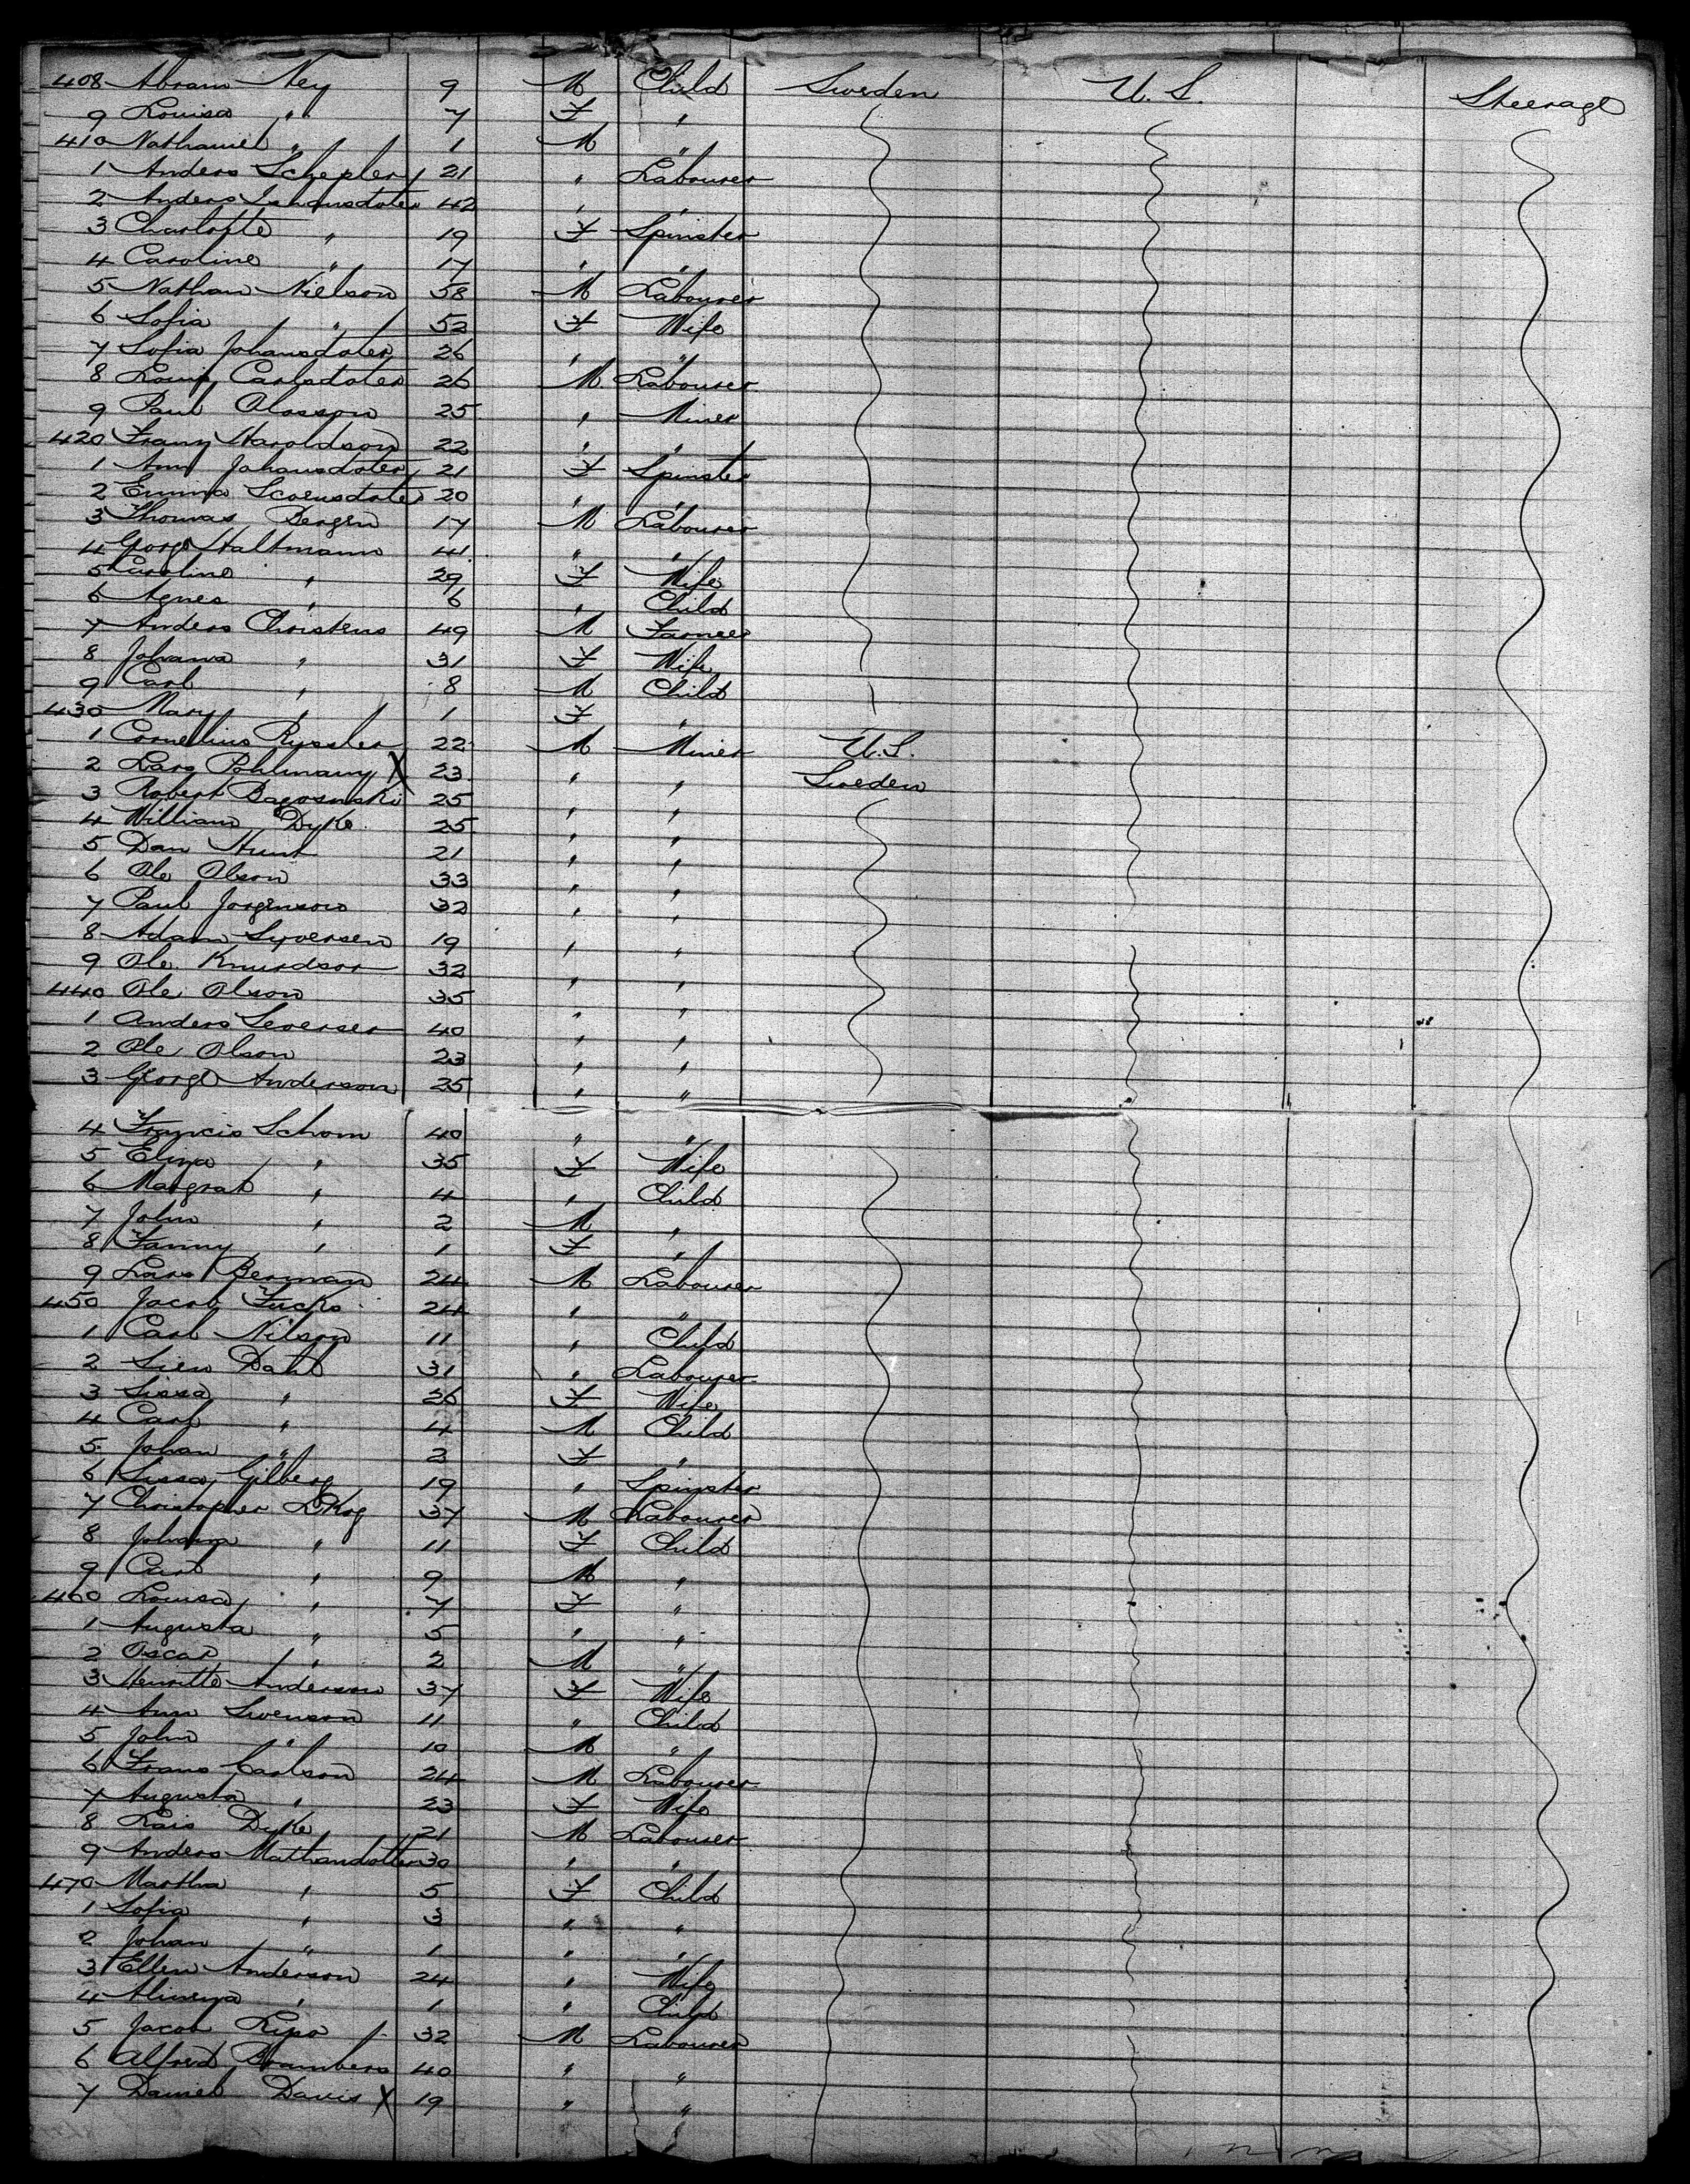 408 Abram Ney 9 M Child Sweden U. S. Steerage
9 Louisa " 7 F "
410 Nathaniel " 1 M "
1 Anders Schepler 21 " Labourer
2 Anders 42 " "
3 Charlotte " 19 F Spinster
4 Caroline " 17 " "
5 Nathan Nielson 58 M Labourer
6 Sofia " 52 F Wife
7 Sofia Johansdoter 26 " "
8 Carlsdoter 26 M Labourer
9 Paul Olasson 25 " Miner
420 Franz Haroldson 22 " "
1 Ann Johansdoter 21 F Spinster
2 Emma 20 " "
3 Thomas Bergen 17 M Labourer
4 George Haltmann 41 " "
5 Caroline " 29 F Wife
6 Agnes " 6 " Child
7 Anders Christens 49 M Farmer
8 Johana " 31 F Wife
9 Carl " 8 M Child
430 Mary " 1 F "
1 Cornelius Ryssler 22 M Miner U.S.
2 Lars Pohlmann X 23 " " Sweden
3 Robert 25 " "
4 William Dyke 25 " "
5 Dan Hunt 21 " "
6 Ole Olson 33 " "
7 Paul Jorgenson 32 " "
8 Adam Syversen 19 " "
9 Ole Knudson 32 " "
440 Ole Olson 35 " "
1 Anders Severser 40 " "
2 Ole Olson 23 " "
3 George Anderson 25 " "
4 Francis Schom 40 " "
5 Eliza " 35 F Wife
6 Margrat " 4 " Child
7 John " 2 M "
8 Fanny " 1 F "
9 Lars Berman 24 M Labourer
450 Jacob Fucks 24 " "
1 Carl Nilson 11 " Child
2 Sien Dahl 31 " Labourer
3 Sissa " 26 F Wife
4 Carl " 4 M Child
5 Johan " 2 F "
6 Sissa Gilberg 19 " Spinster
7 Christopher 37 M Labourer
8 Johana " 11 F Child
9 Carl " 9 M "
460 Louisa " 7 F "
1 Augusta " 5 " "
2 Oscar " 2 M "
3 Henritte Anderson 37 F Wife
4 Ann Swenson 11 " Child
5 John " 10 M "
6 Frans Carlson 24 M Labourer
7 Augusta " 23 F Wife
8 Lais Dyke 21 M Labourer
9 Anders Mathandotter 30 " "
470 Martha " 5 F Child
1 Sofia " 3 " "
2 Johan " 1 " "
3 Ellen Anderson 24 " Wife
4 " 1 " Child
5 Jacob 32 M Labourer
6 Alfred Brambers 40 " "
7 Daniel Davis X 19 " "